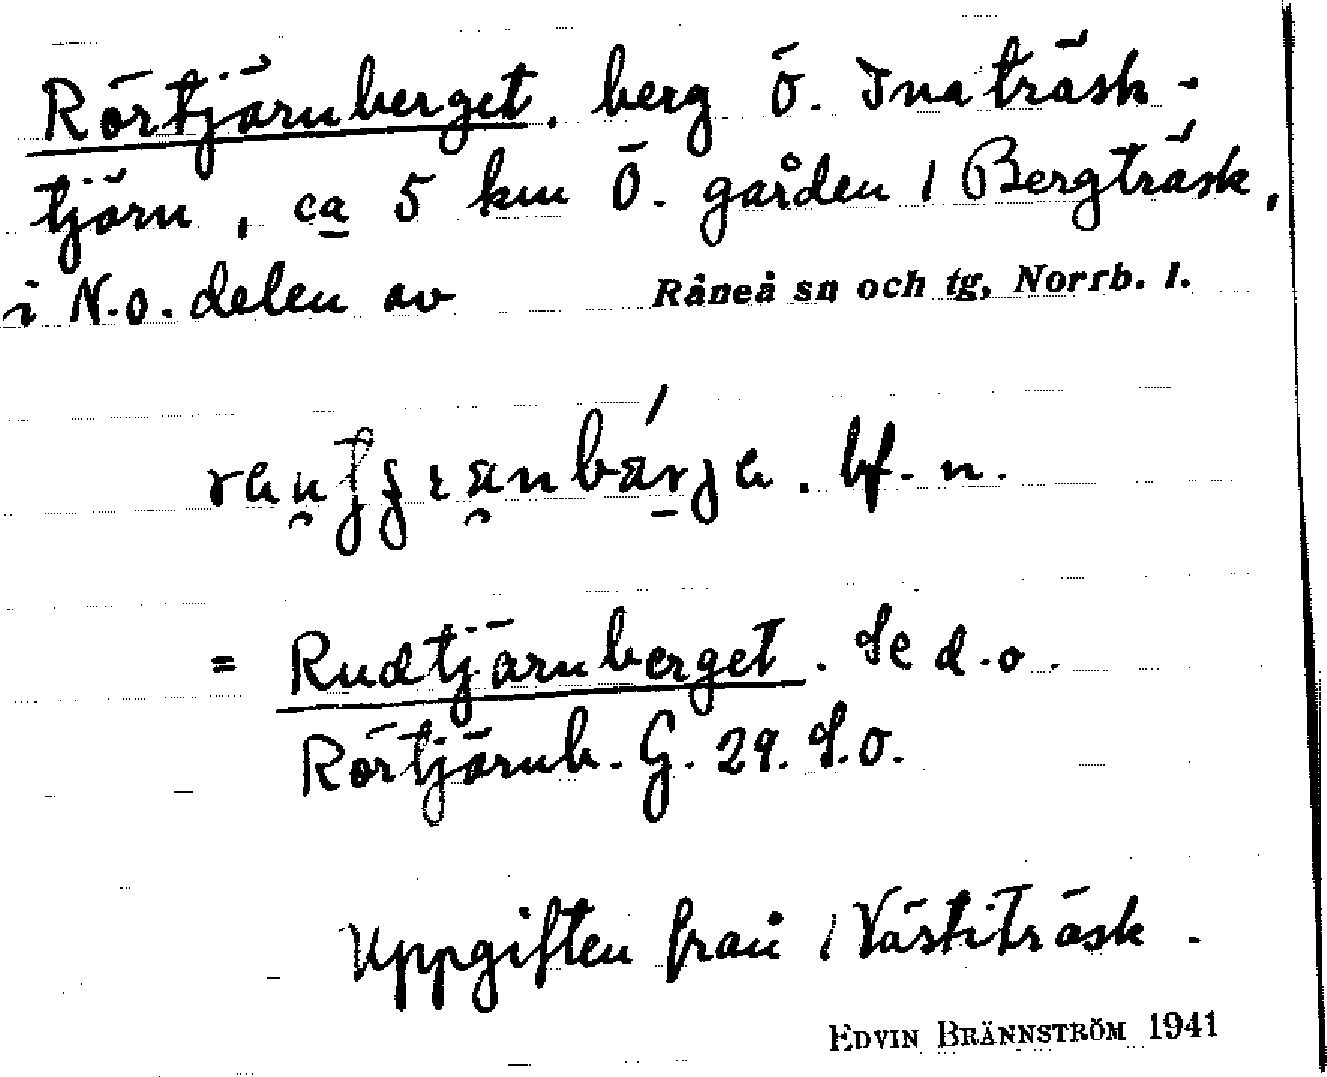 Rörtjärnberget, berg ö. Inaträsk-
tjärn, ca 5 km Ö. gården i Bergträsk,
i N.o. delen av Råneå sn och tg, Norrb. l.
bf. n.
= Rudtjärnberget. Se d.o.
Rörtjärnb. G. 29. S.O.
Uppgiften från i Västiträsk.
EDVIN BRÄNNSTRÖM 1941